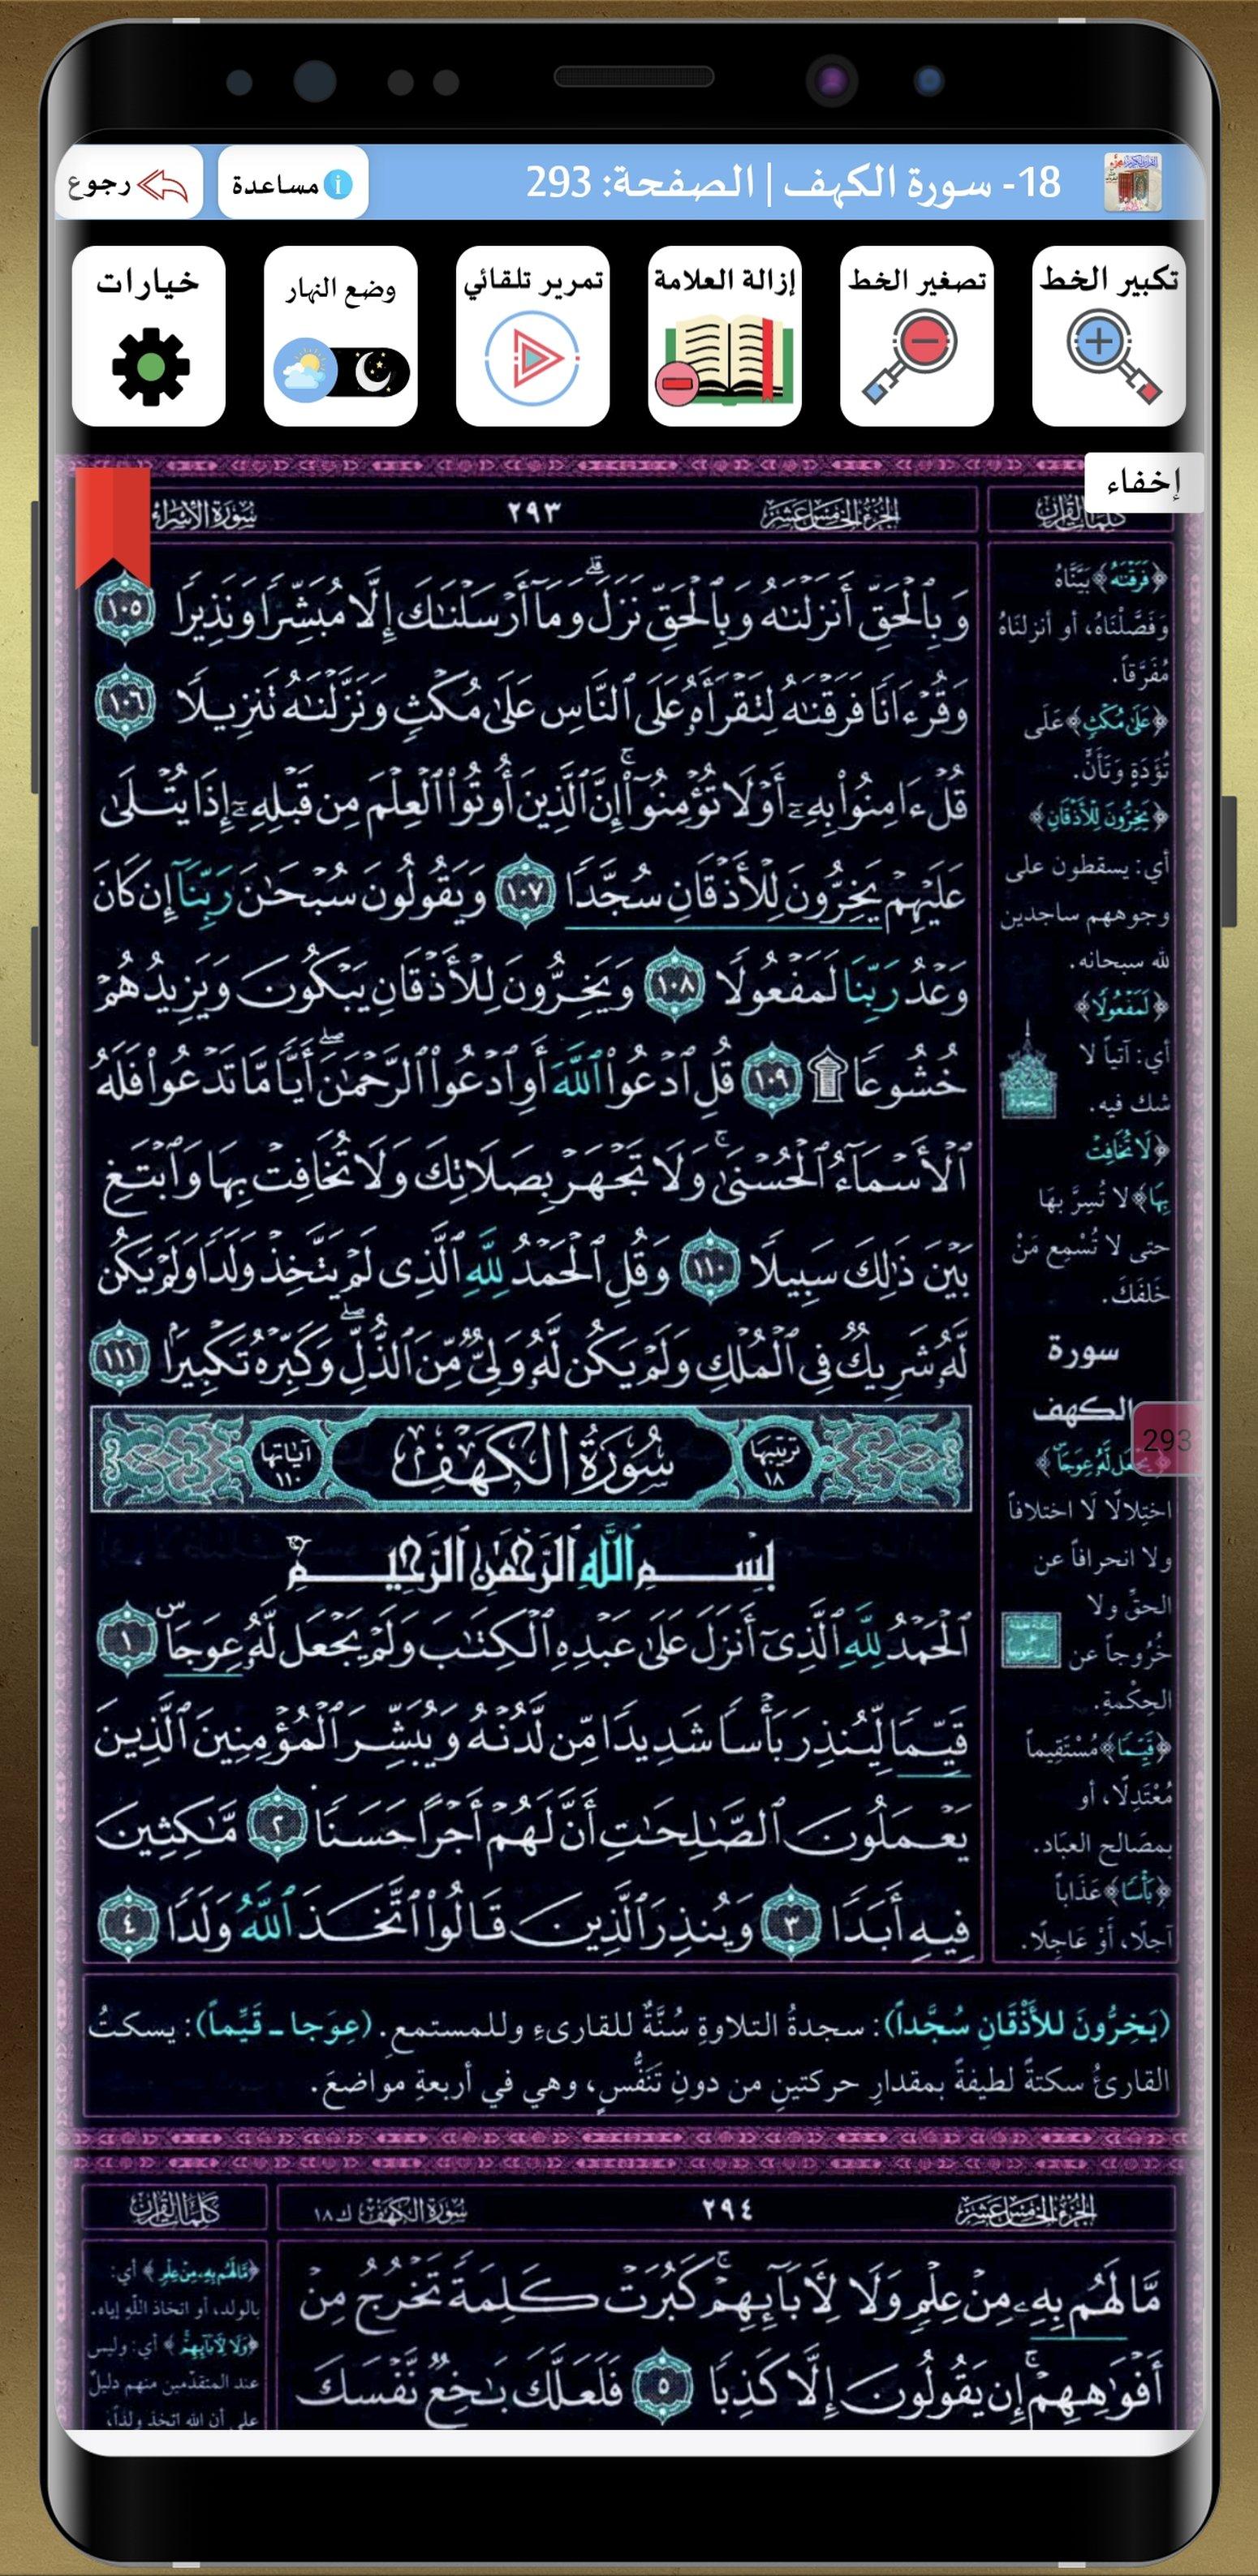 18- سورة الكهف | الصفحة: 293
مساعدة
رجوع
تكبير الخط
تصغير الخط
إزالة العلامة
تمرير تلقائي
وضع النهار
خيارات
إخفاء
كلمات القرآن
الجزء الخامس عشر
٢٩٣
سورة الإسراء
وَبِٱلْحَقِّ أَنزَلْنَٰهُ وَبِٱلْحَقِّ نَزَلَ ۗ وَمَآ أَرْسَلْنَٰكَ إِلَّا مُبَشِّرًا وَنَذِيرًا ١٠٥
وَقُرْءَانًا فَرَقْنَٰهُ لِتَقْرَأَهُۥ عَلَى ٱلنَّاسِ عَلَىٰ مُكْثٍ وَنَزَّلْنَٰهُ تَنزِيلًا ١٠٦
قُلْ ءَامِنُوا۟ بِهِۦٓ أَوْ لَا تُؤْمِنُوٓا۟ ۚ إِنَّ ٱلَّذِينَ أُوتُوا۟ ٱلْعِلْمَ مِن قَبْلِهِۦٓ إِذَا يُتْلَىٰ
عَلَيْهِمْ يَخِرُّونَ لِلْأَذْقَانِ سُجَّدًا ١٠٧ وَيَقُولُونَ سُبْحَٰنَ رَبِّنَآ إِن كَانَ
وَعْدُ رَبِّنَا لَمَفْعُولًا ١٠٨ وَيَخِرُّونَ لِلْأَذْقَانِ يَبْكُونَ وَيَزِيدُهُمْ
خُشُوعًا ۩ ١٠٩ قُلِ ٱدْعُوا۟ ٱللَّهَ أَوِ ٱدْعُوا۟ ٱلرَّحْمَٰنَ ۖ أَيًّا مَّا تَدْعُوا۟ فَلَهُ
ٱلْأَسْمَآءُ ٱلْحُسْنَىٰ ۚ وَلَا تَجْهَرْ بِصَلَاتِكَ وَلَا تُخَافِتْ بِهَا وَٱبْتَغِ
بَيْنَ ذَٰلِكَ سَبِيلًا ١١٠ وَقُلِ ٱلْحَمْدُ لِلَّهِ ٱلَّذِى لَمْ يَتَّخِذْ وَلَدًا وَلَمْ يَكُن
لَّهُۥ شَرِيكٌ فِى ٱلْمُلْكِ وَلَمْ يَكُن لَّهُۥ وَلِىٌّ مِّنَ ٱلذُّلِّ ۖ وَكَبِّرْهُ تَكْبِيرًۢا ١١١
ترتيبها ١٨
سُورَةُ الكَهْفِ
آياتها ١١٠
بِسْمِ ٱللَّهِ ٱلرَّحْمَٰنِ ٱلرَّحِيمِ
ٱلْحَمْدُ لِلَّهِ ٱلَّذِىٓ أَنزَلَ عَلَىٰ عَبْدِهِ ٱلْكِتَٰبَ وَلَمْ يَجْعَل لَّهُۥ عِوَجَا ۜ ١
قَيِّمًا لِّيُنذِرَ بَأْسًا شَدِيدًا مِّن لَّدُنْهُ وَيُبَشِّرَ ٱلْمُؤْمِنِينَ ٱلَّذِينَ
يَعْمَلُونَ ٱلصَّٰلِحَٰتِ أَنَّ لَهُمْ أَجْرًا حَسَنًا ٢ مَّٰكِثِينَ
فِيهِ أَبَدًا ٣ وَيُنذِرَ ٱلَّذِينَ قَالُوا۟ ٱتَّخَذَ ٱللَّهُ وَلَدًا ٤
﴿فَرَقْنَٰهُ﴾ بَيَّنَّاهُ
وَفَصَّلْنَاهُ، أو أنزلنَاهُ
مُفَرَّقاً.
﴿عَلَىٰ مُكْثٍ﴾ عَلَى
تُؤَدَةٍ وَتَأَنٍّ.
﴿يَخِرُّونَ لِلْأَذْقَانِ﴾
أي: يسقطون على
وجوههم ساجدين
لله سبحانه.
﴿لَمَفْعُولًا﴾
أي: آتياً لا
شك فيه.
سجدة
﴿لَا تُخَافِتْ
بِهَا﴾ لا تُسِرَّ بهَا
حتى لا تُسْمِع مَنْ
خَلفَكَ.
سورة
الكهف
293
يَجْعَل لَّهُۥ عِوَجًا﴾
اختِلالًا لَا اختلافاً
ولا انحرافاً عن
الحقِّ ولا
خُرُوجاً عن
الحِكْمةِ.
﴿قَيِّمًا﴾ مُسْتَقِيماً
مُعْتَدِلًا، أو
بمصَالح العبَاد.
﴿بَأْسًا﴾ عَذَاباً
آجلًا، أَوْ عَاجِلًا.
(يَخِرُّونَ للأَذْقَانِ سُجَّداً): سجدةُ التلاوةِ سُنَّةٌ للقارىءِ وللمستمعِ. (عِوَجا ـ قَيِّماً): يسكتُ
القارئُ سكتةً لطيفةً بمقدارِ حركتينِ من دونِ تَنَفُّسٍ، وهي في أربعةِ مواضعَ.
الجزء الخامس عشر
٢٩٤
سورة الكهف ك ١٨
كلمات القرآن
مَّا لَهُم بِهِۦ مِنْ عِلْمٍ وَلَا لِأَبَآئِهِمْ ۚ كَبُرَتْ كَلِمَةً تَخْرُجُ مِنْ
أَفْوَٰهِهِمْ ۚ إِن يَقُولُونَ إِلَّا كَذِبًا ٥ فَلَعَلَّكَ بَٰخِعٌ نَّفْسَكَ
﴿مَّا لَهُم بِهِۦ مِنْ عِلْمٍ﴾ أي:
بالولد، أو اتخاذ اللَّهِ إياه.
﴿وَلَا لِأَبَآئِهِمْ﴾ أي: وليس
عند المتقدّمين منهم دليلٌ
على أن الله اتخذ ولداً،